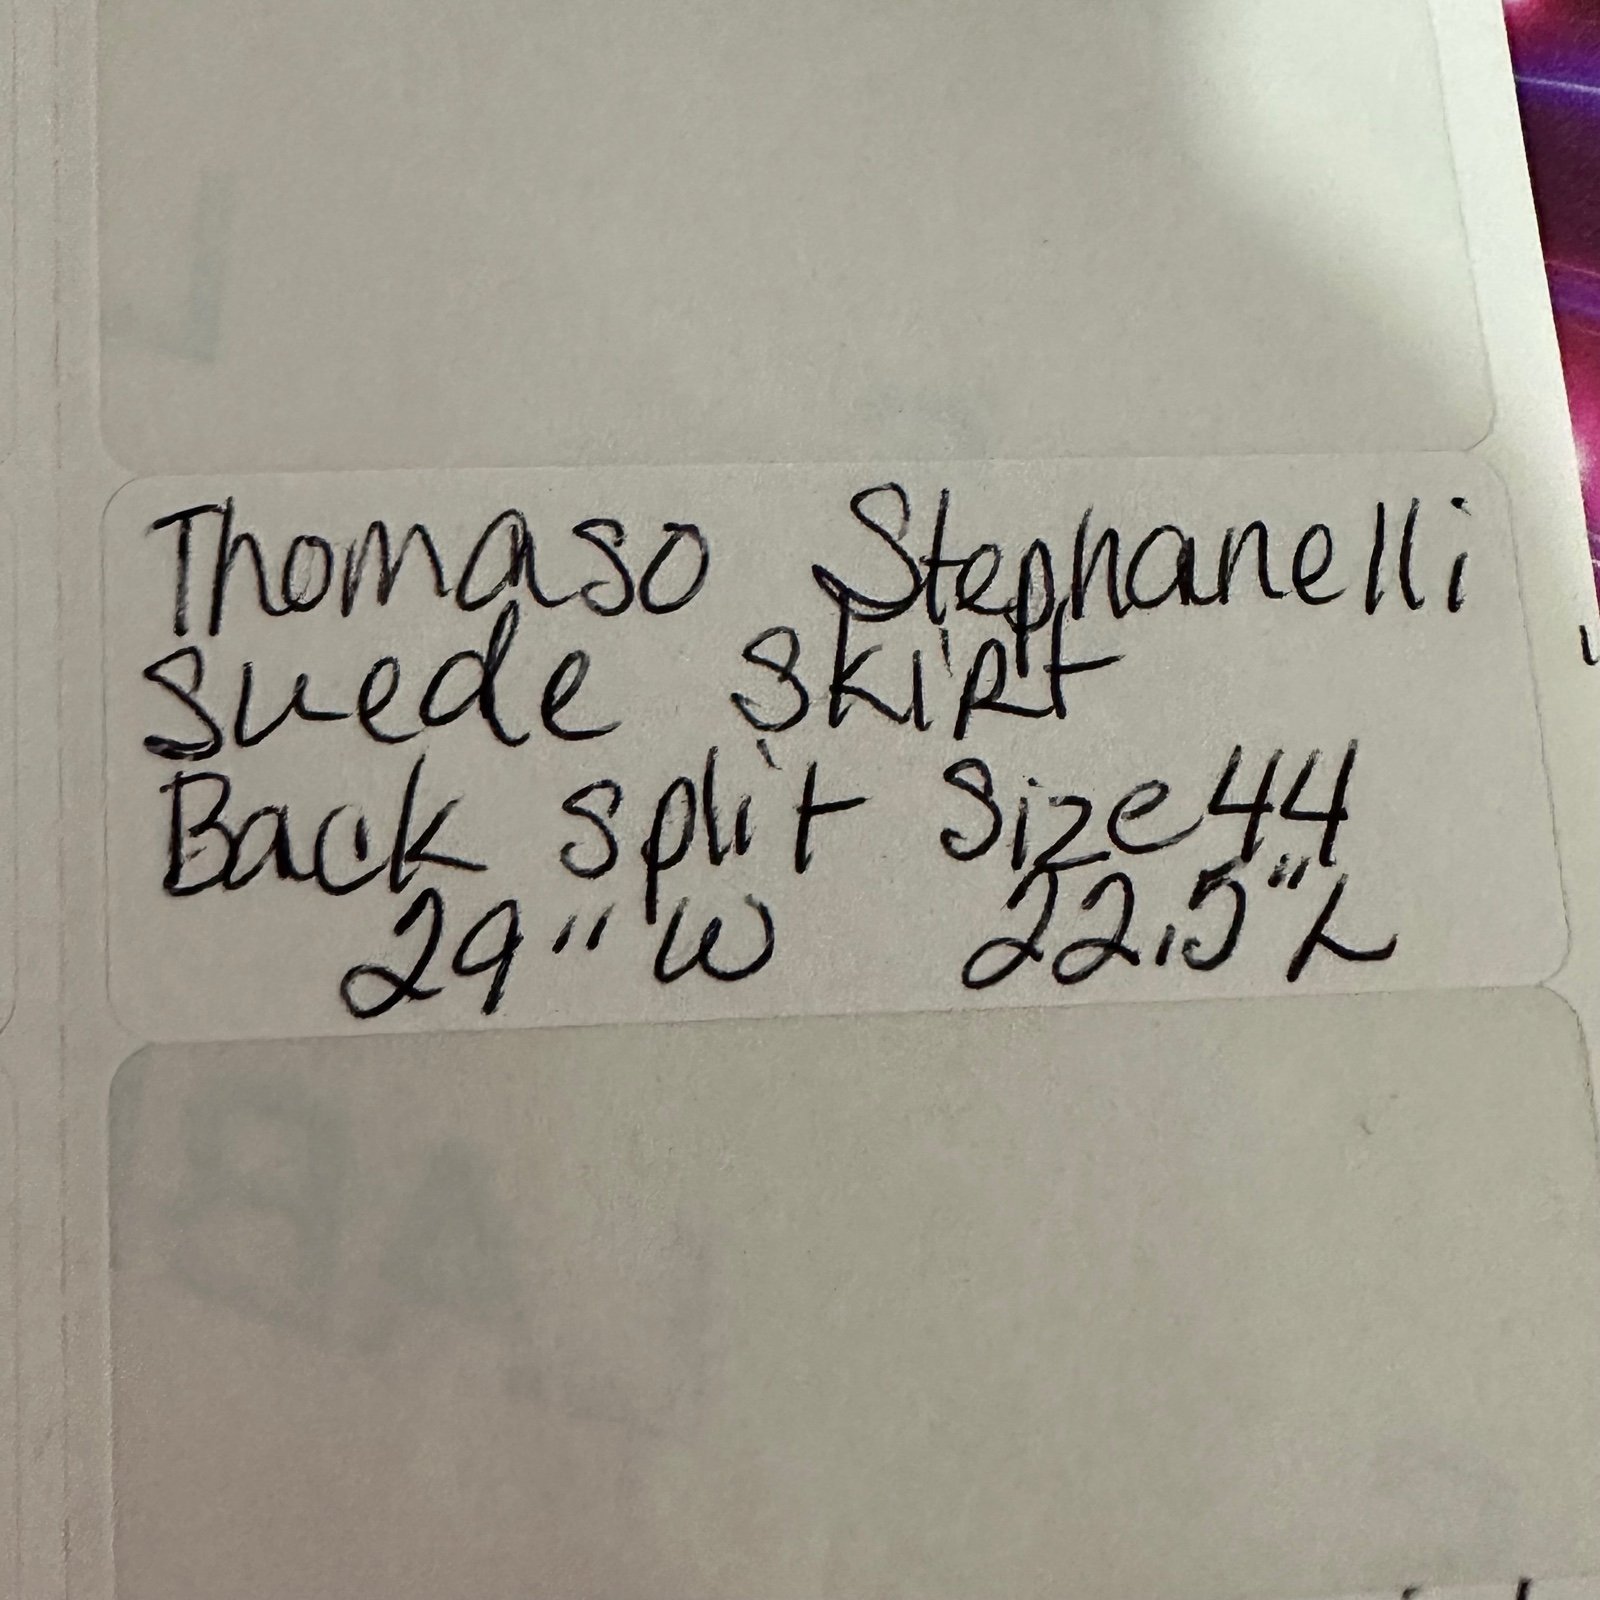 Thomaso Stephanelli
Suede Skirt
Back split Size 44
29" W 22.5" L